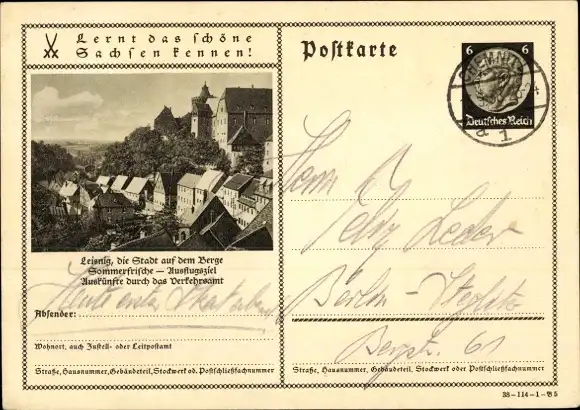 Lernt das schöne
Sachsen kennen!
Leisnig, die Stadt auf dem Berge
Sommerfrische — Ausflugsziel
Auskünfte durch das Verkehrsamt
Heute erster Skatabend
Absender:
Wohnort, auch Zustell- oder Leitpostamt
Straße, Hausnummer, Gebäudeteil, Stockwerk od. Postschließfachnummer
Postkarte
6 6
Deutsches Reich
CHEMNITZ
d 1
Herrn
Fritz Leder
Berlin-Steglitz
Bergstr. 61
Straße, Hausnummer, Gebäudeteil, Stockwerk oder Postschließfachnummer
38-114-1-B5